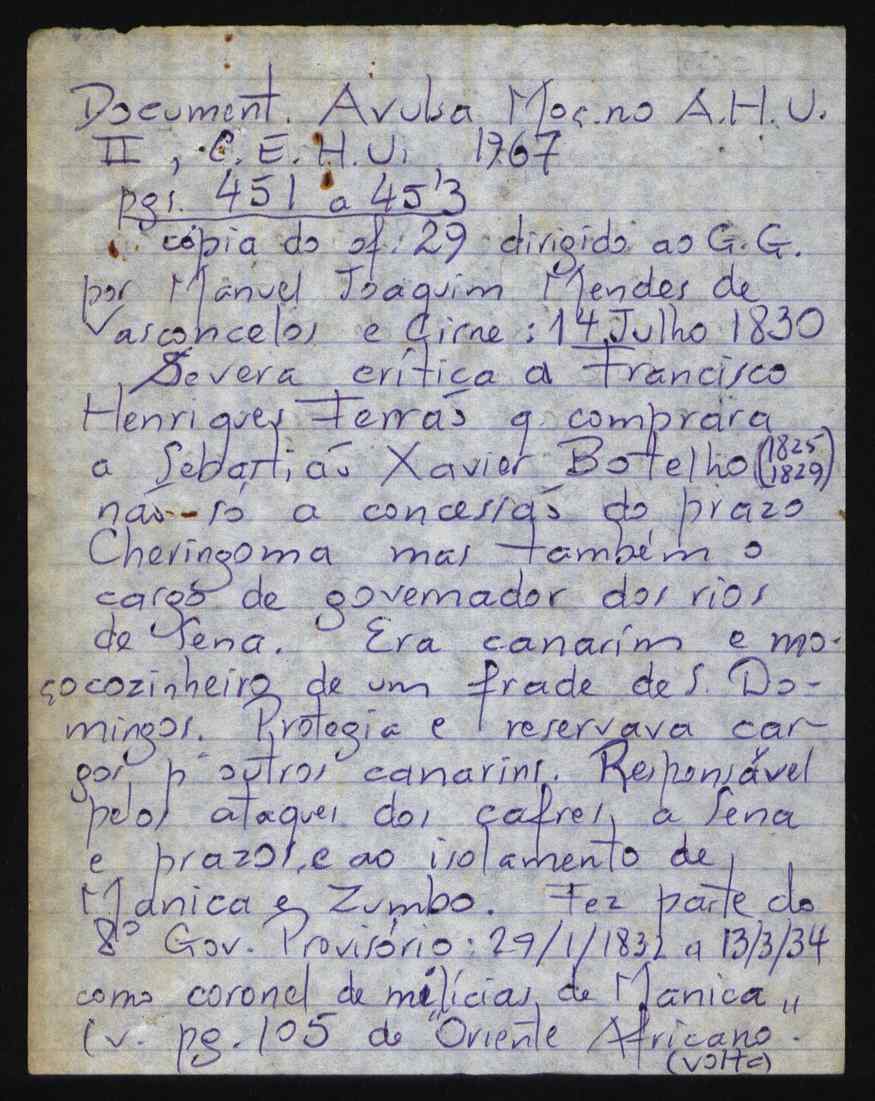 Document. Avulsa Moç. no A.H.U.
II, C.E.H.U. 1967
pgs. 451 a 453
cópia do of. 29 dirigido ao G.G.
por Manuel Joaquim Mendes de
Vasconcelos e Cirne: 14 Julho 1830
Severa crítica a Francisco
Henriques Ferrão q. comprara
a Sebastião Xavier Botelho (1825 1829)
não só a concessão do prazo
Cheringoma mas também o
cargo de governador dos rios
de Sena. Era canarim e mo-
ço cozinheiro de um frade de S. Do-
mingos. Protegia e reservava car-
gos p outros canarins. Responsável
pelos ataques dos cafres a Sena
e prazos, e ao isolamento de
Manica e Zumbo. Fez parte do
8º Gov. Provisório: 29/1/1832 a 13/3/34
como coronel de milícias de Manica "
(v. pg. 105 do "Oriente Africano
(volta)